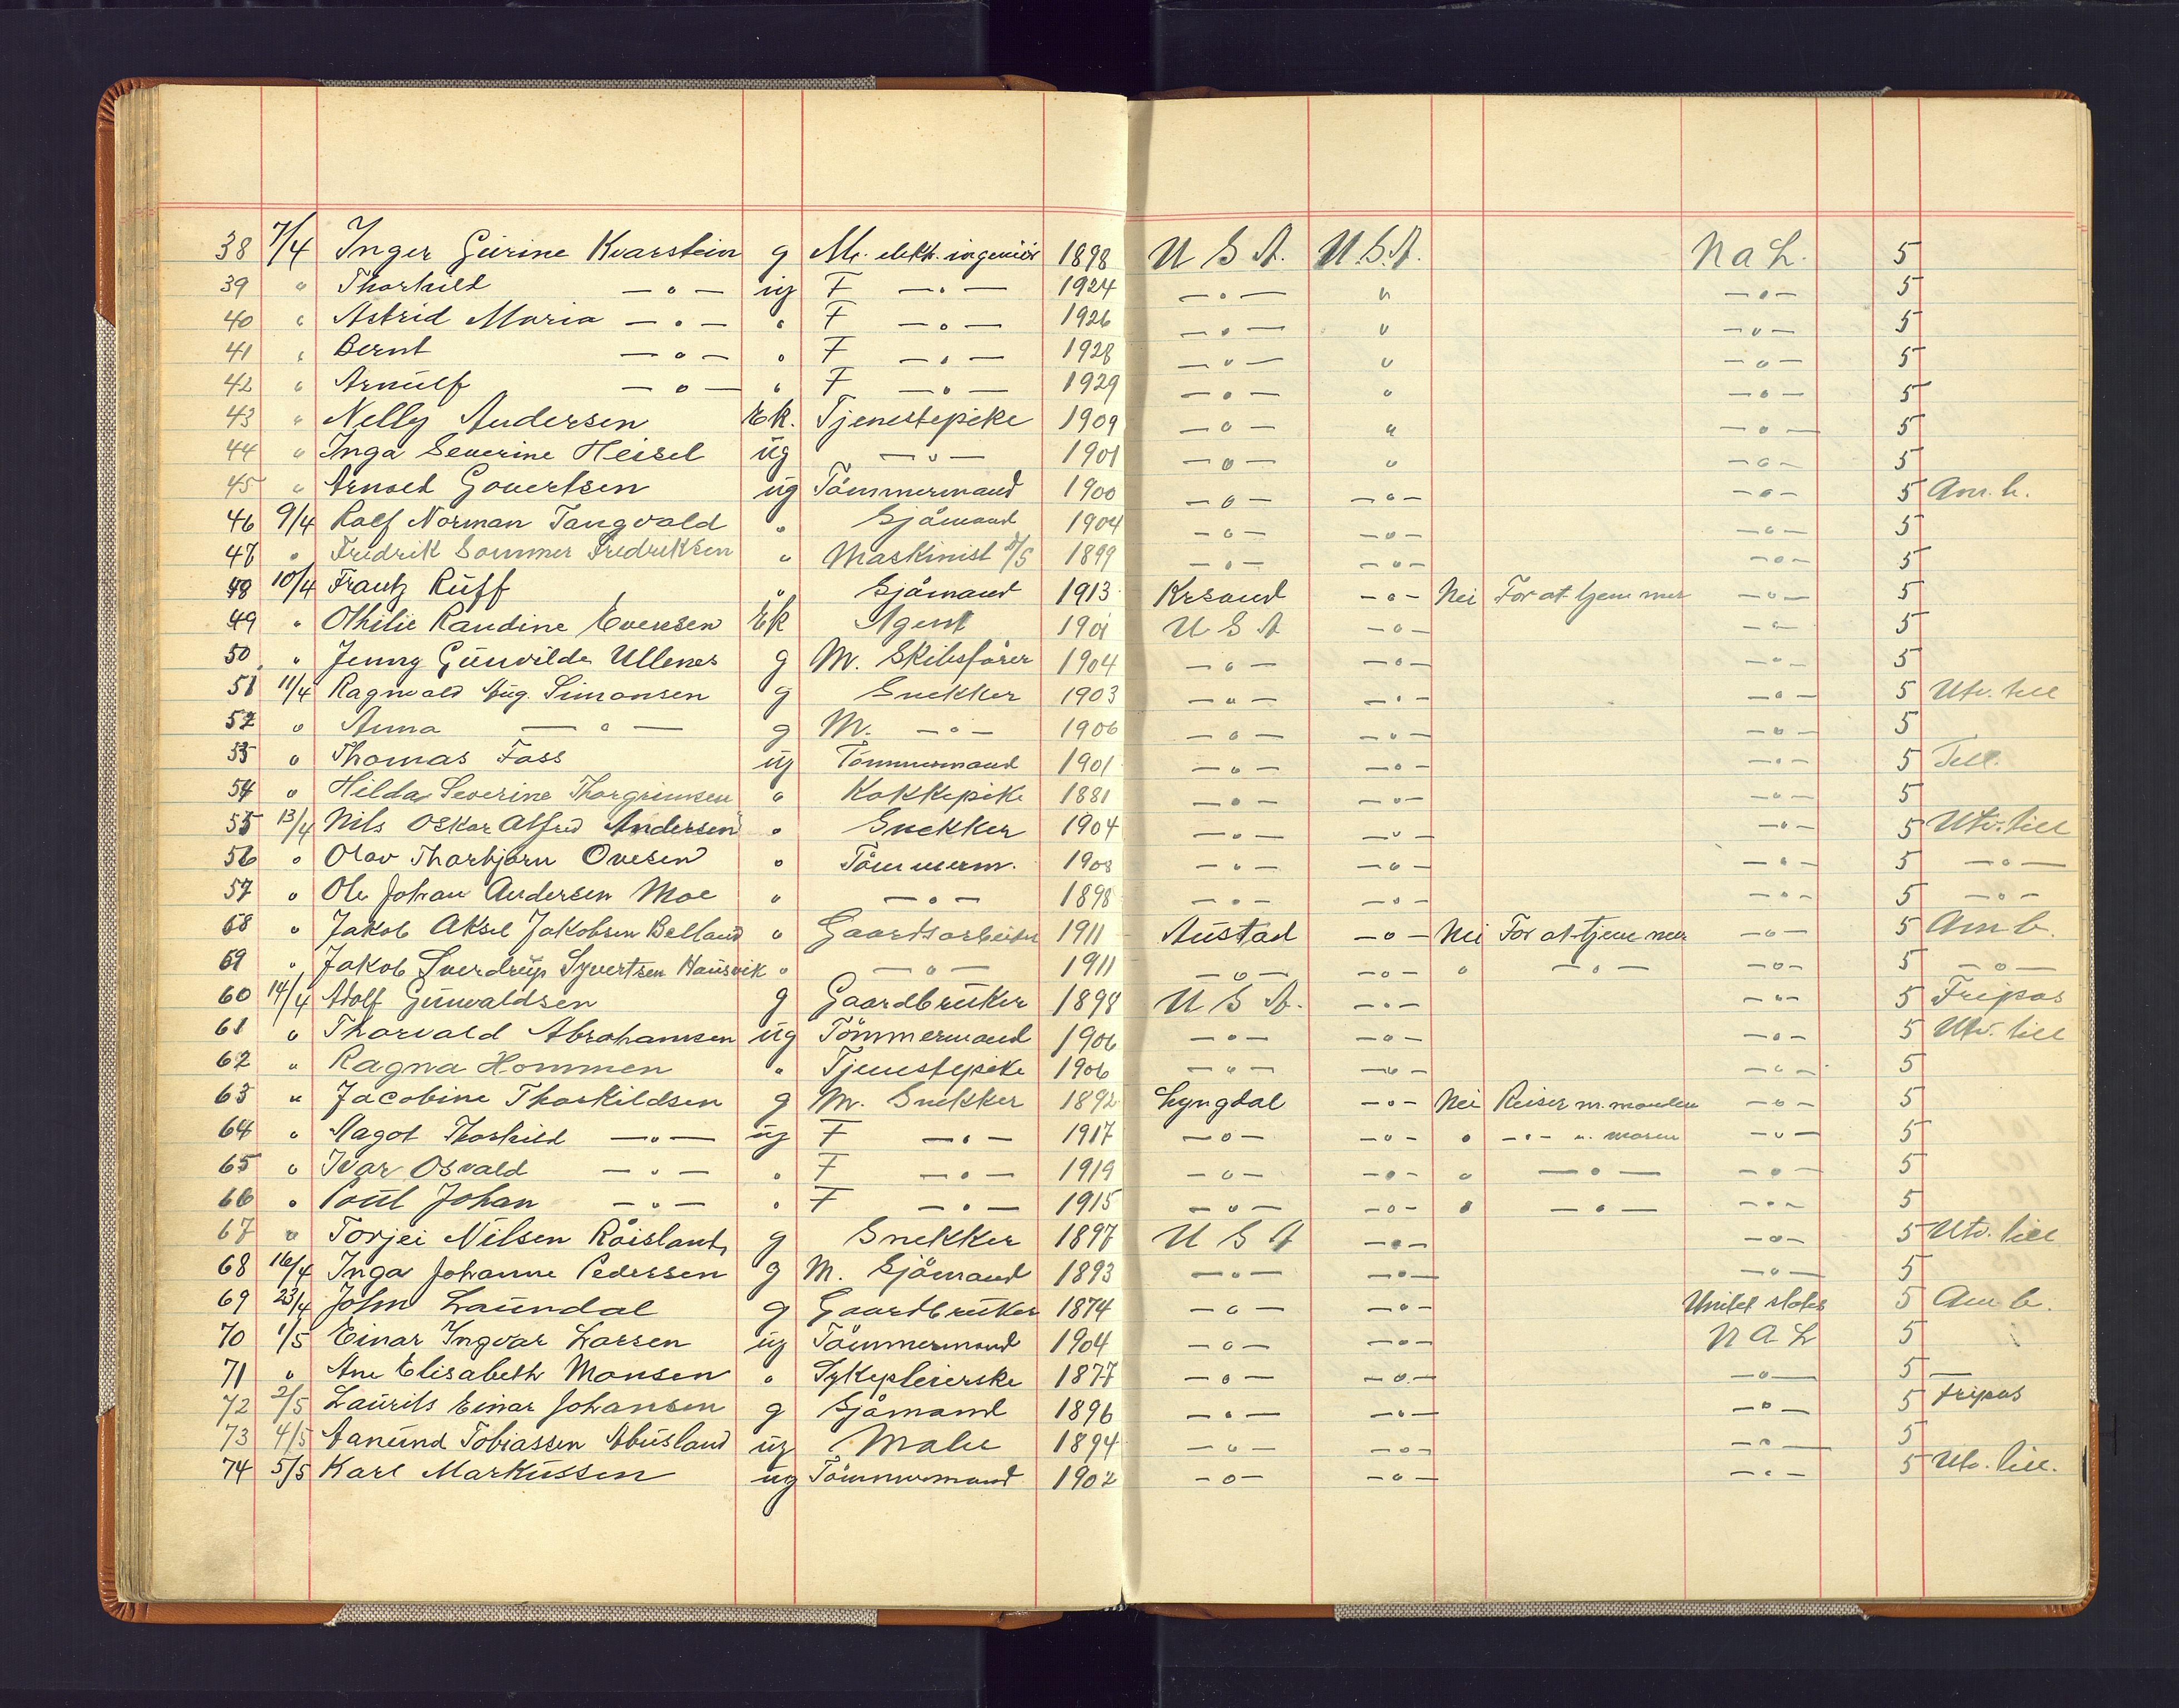 38 7/4 Inger Gurine Kvarstein g M. elekt. ingeniör 1898 U S A. U.S.A. N a L. 5
39 " Thorkild —"— ug F —"— 1924 —"— " —"— 5
40 " Astrid Maria —"— " F —"— 1926 —"— " —"— 5
41 " Bernt —"— " F —"— 1928 —"— " —"— 5
42 " Arnulf —"— " F —"— 1929 —"— " —"— 5
43 " Nelly Andersen Ek. Tjenestepike 1909 —"— " —"— 5
44 " Inga Severine Heisel ug —"— 1901 —"— " —"— 5
45 " Arnold Govertsen ug Tömmermand 1900 —"— —"— —"— 5 Am. b.
46 9/4 Rolf Norman Tangvald " Sjömand 1904 —"— —"— —"— 5
47 " Fredrik Sommer Fredriksen " Maskinist D/S 1899 —"— —"— —"— 5
48 10/4 Frantz Ruff " Sjömand 1913 Krsand —"— Nei For at tjene mer —"— 5
49 " Othilie Randine Evensen Ek Agent 1901 U S A —"— —"— 5
50 " Jenny Gunvilde Ullenes g M. Skibsförer 1904 —"— —"— —"— 5
51 11/4 Ragnvald Aug. Simonsen g Snekker 1903 —"— —"— —"— 5 Utv. till
52 " Anna —"— g M. —"— 1906 —"— —"— —"— 5
53 " Thomas Foss ug Tömmermand 1901 —"— —"— —"— 5 Till.
54 " Hilda Severine Thorgrimsen " Kokkepike 1881 —"— —"— —"— 5
55 13/4 Nils Oskar Alfred Andersen " Snekker 1904 —"— —"— —"— 5 Utv. till
56 " Olav Thorbjörn Ovesen " Tömmerm. 1908 —"— —"— —"— 5 —"—
57 " Ole Johan Andersen Moe " —"— 1898 —"— —"— —"— 5 —"—
58 " Jakob Aksel Jakobsen Belland " Gaardsarbeider 1911 Austad —"— Nei For at tjene mer —"— 5 Am b.
59 " Jakob Sverdrup Syvertsen Hausvik " —"— 1911 —"— —"— " —"— —"— 5 —"—
60 14/4 Adolf Gunvaldsen g Gaardbruker 1898 U S A. —"— —"— 5 Fripas
61 " Thorvald Abrahamsen ug Tömmermand 1906 —"— —"— —"— 5 Utv. till
62 " Ragna Hommen " Tjenestepike 1906 —"— —"— —"— 5
63 " Jacobine Thorkildsen g M. Snekker 1892 Lyngdal —"— Nei Reiser m. manden —"— 5
64 " Magot Thorkild —"— ug F —"— 1917 —"— —"— " —"— m. moren —"— 5
65 " Ivar Osvald —"— " F —"— 1919 —"— —"— " —"— —"— 5
66 " Poul Johan —"— " F —"— 1915 —"— —"— " —"— —"— 5
67 " Torjei Nilsen Röisland g Snekker 1897 U S A —"— —"— 5 Utv. till
68 16/4 Inga Johanne Pedersen g M. Sjömand 1893 —"— —"— —"— 5
69 23/4 John Laundal g Gaardbruker 1874 —"— —"— United states 5 Am b.
70 1/5 Einar Ingvar Larsen ug Tömmermand 1904 —"— —"— N A L 5
71 " Ane Elisabeth Monsen " Sykepleierske 1877 —"— —"— —"— 5 —
72 2/5 Laurits Einar Johansen g Sjömand 1896 —"— —"— —"— 5 Fripas
73 4/5 Aanund Tobiassen Abusland ug Maler 1894 —"— —"— —"— 5
74 5/5 Karl Markussen ug Tömmermand 1902 —"— —"— —"— 5 Utv. till.